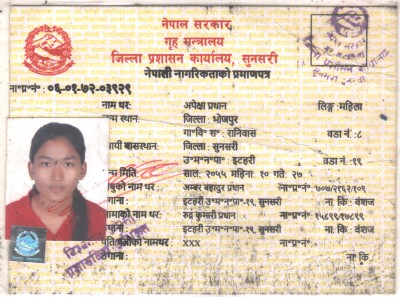 नेपाल सरकार
गृह मन्त्रालय
जिल्ला प्रशासन कार्यालय, सुनसरी
नेपाली नागरिकताको प्रमाणपत्र
ना॰प्र॰नं॰: ०६-०१-७२-०३९२९
नाम थर: अपेक्षा प्रधान लिङ्ग: महिला
स्थान: जिल्ला: भोजपुर
गा॰वि॰ स॰: रानिवास वडा नं॰: ८
स्थायी बासस्थान: जिल्ला: सुनसरी
उ॰म॰न॰पा॰: इटहरी वडा नं॰: १९
मिति: साल: २०५५ महिना: १० गते: २७
बाबुको नाम थर: अम्बर बहादुर प्रधान ना॰प्र॰नं॰: ७०७/२९६२/१०९
ठेगाना: इटहरी उ॰म॰न॰पा॰-१९, सुनसरी ना॰ कि: वंशज
आमाको नाम थर: रुद्र कुमारी प्रधान ना॰प्र॰नं॰: १५८९९/७८९९
ठेगाना: इटहरी उ॰म॰न॰पा॰-१९, सुनसरी ना॰ कि: वंशज
पति/पत्नीको नाम थर: xxx ना॰प्र॰नं॰:
ठेगाना: ना॰ कि